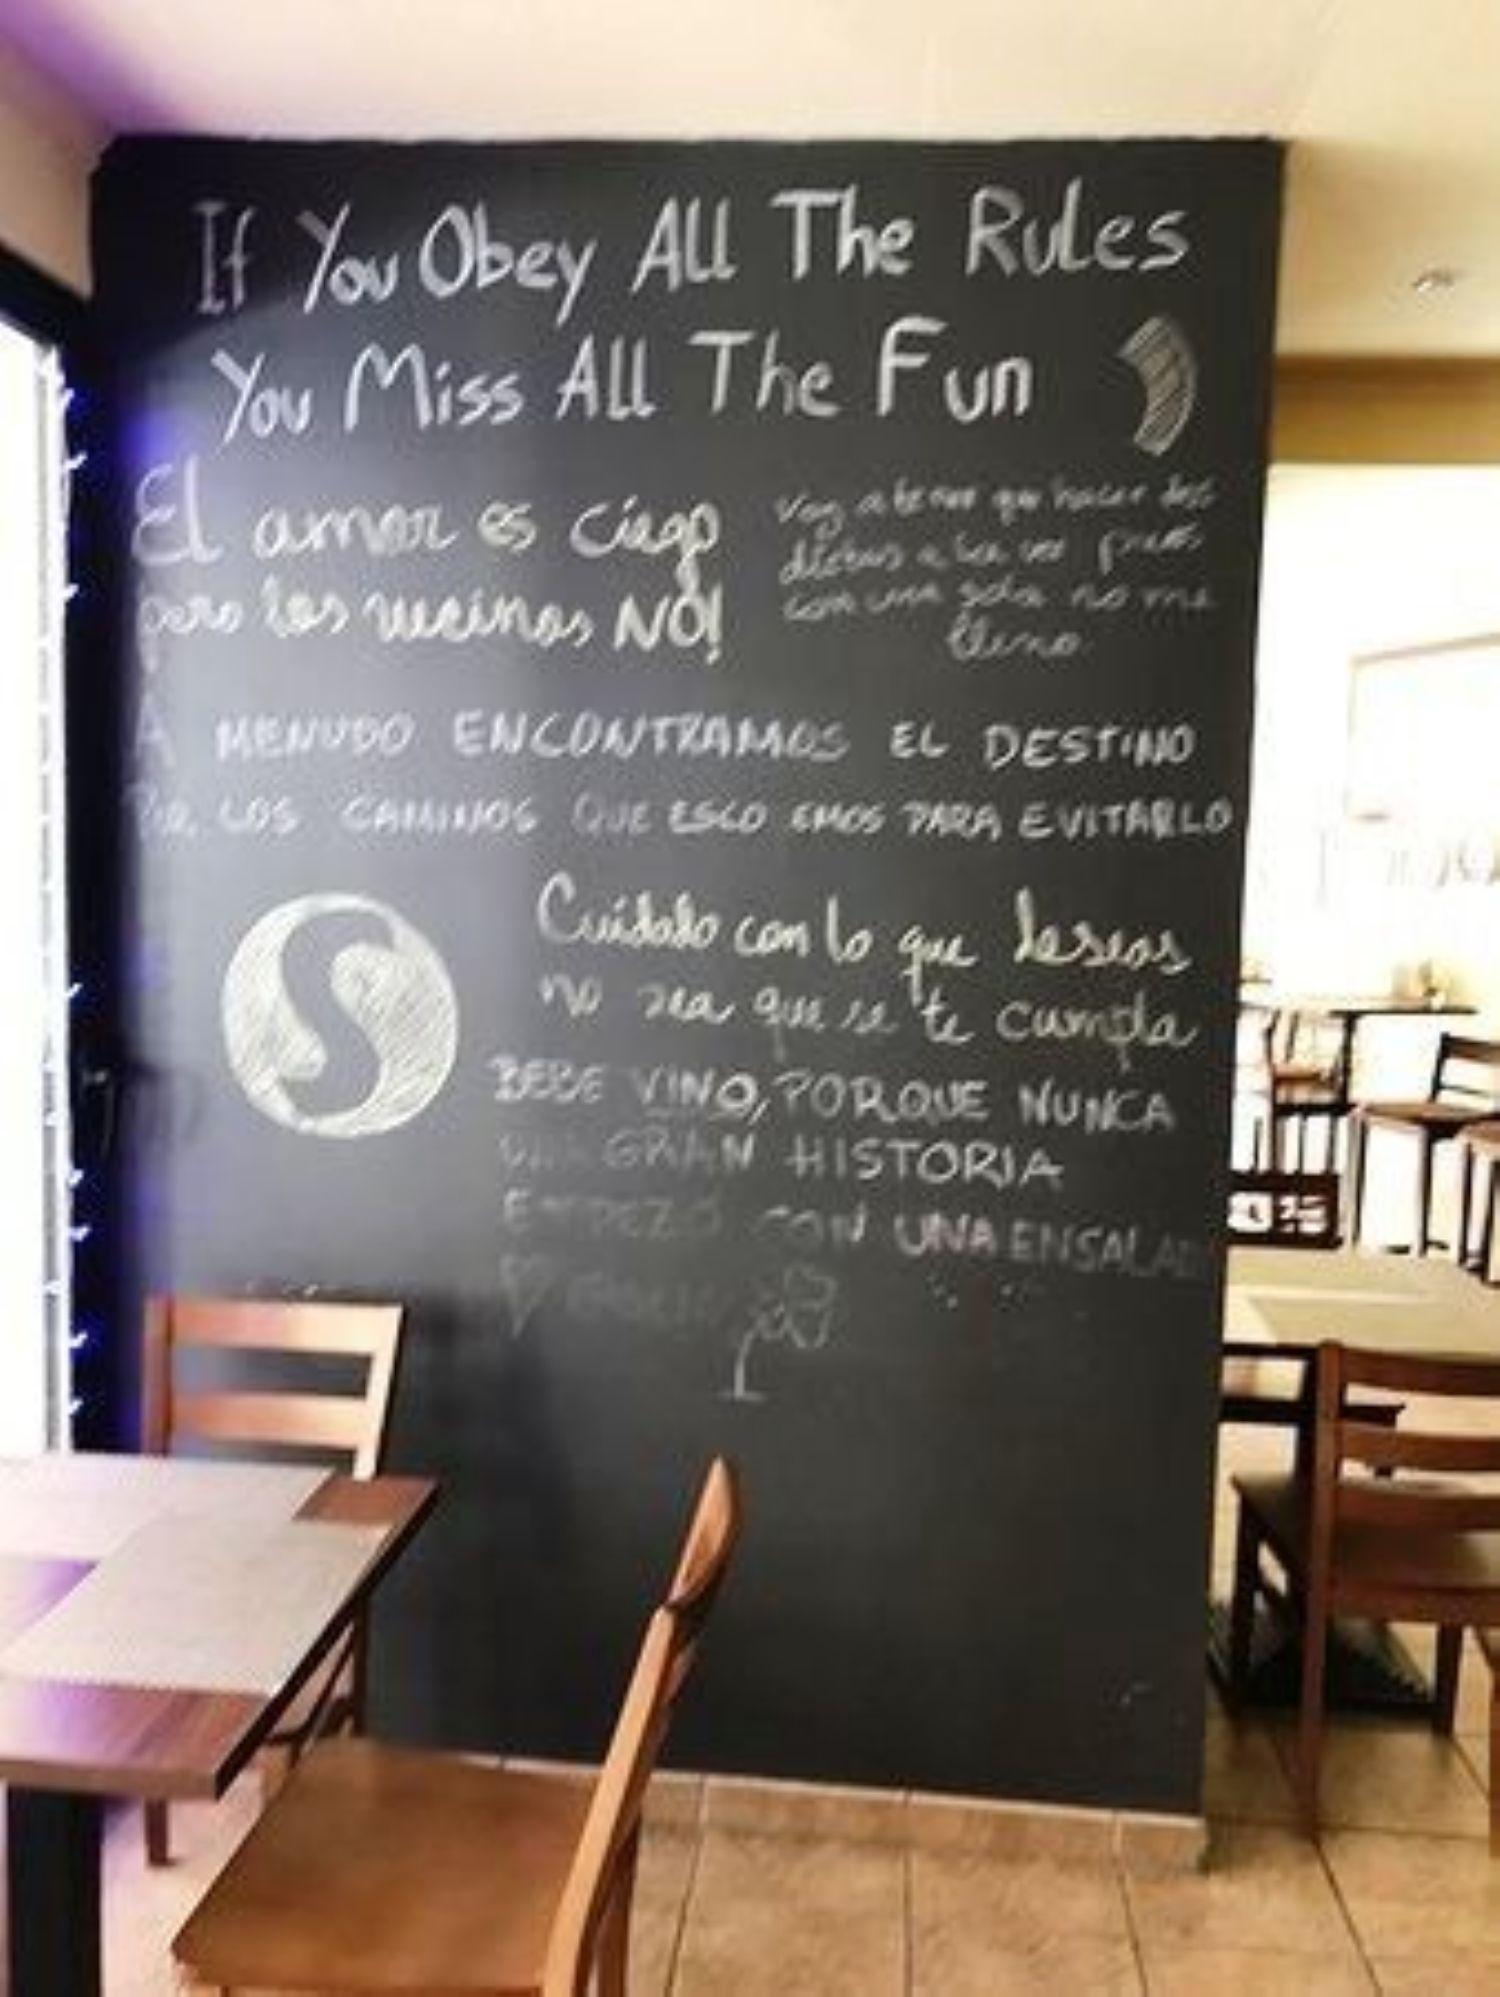 If You Obey All The Rules
You Miss All The Fun
El amor es ciego
pero los vecinos NO!
Voy a tener que hacer dos
dietas a la vez pues
con una sola no me
lleno
A MENUDO ENCONTRAMOS EL DESTINO
POR LOS CAMINOS QUE ESCO EMOS PARA EVITARLO
S
Cuidado con lo que deseas
no sea que se te cumpla
BEBE VINO, PORQUE NUNCA
GRAN HISTORIA
EMPEZÓ CON UNA ENSALAD